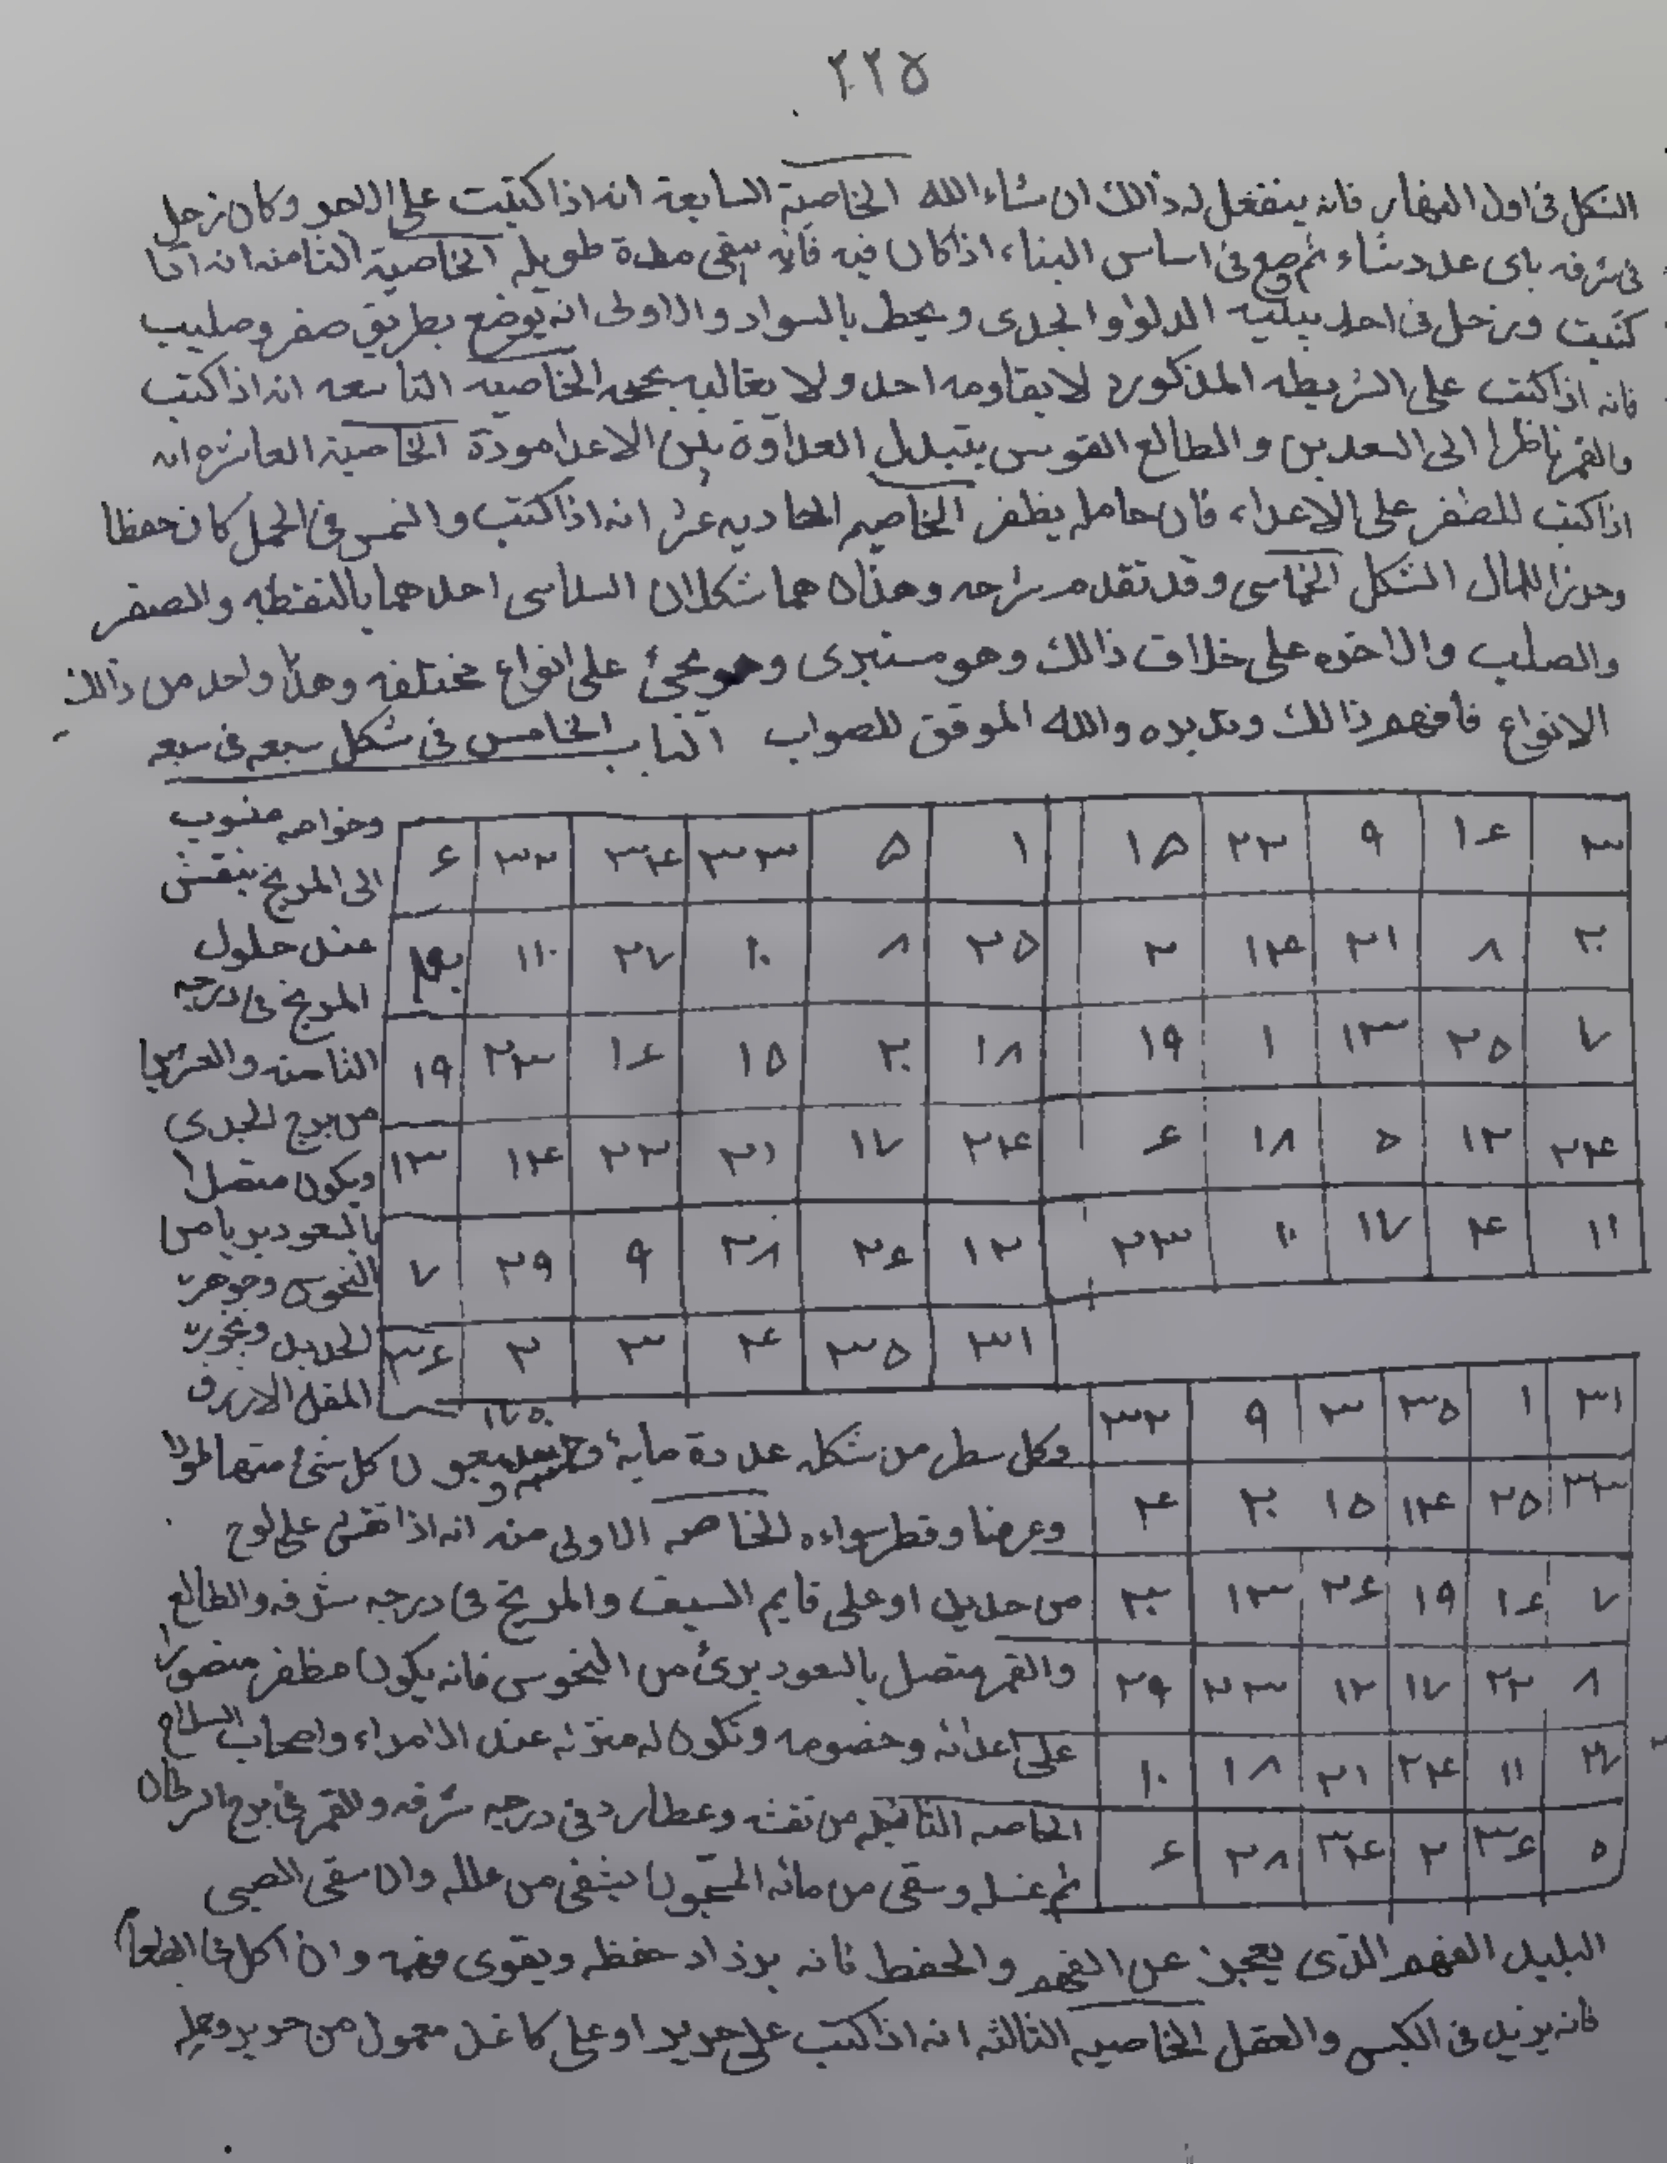 ٢٢٥
الشكل فى اول النهار فانه ينفعل له ذالك ان شاء الله الخاصية السابعة انه اذا كتبت على اللحو وكان زحل
فى شرفه باى عدد شاء ثم وضع فى اساس البناء اذا كان فيه فانه يبقى مدة طويله الخاصية الثامنه انه اذا
كتبت وزحل فى احد بيتيه الدلو او الجدى ويحط بالسواد والاولى انه يوضع بطريق صفر وصليب
فانه اذا كتبت على الشريطه المذكوره لا يقاومه احد ولا يغالبه بحجه الخاصيه التاسعه انه اذا كتب
والقمر ناظرا الى السعدين والطالع القوس يتبدل العداوة بين الاعدا مودة الخاصية العاشره انه
اذا كتب للظفر على الاعداء فان حامله يظفر الخاصيه الحاديه عشر انه اذا كتب والشمس فى الحمل كان حفظا
وحرزا للمال الشكل الخماسى وقد تقدم شرحه وهذان هما شكلان السداسى احدهما بالنقطه والصفر
والصليب والاخره على خلاف ذالك وهو مستبرى وهو يجئ على انواع مختلفه وهذا واحد من ذالك
الانواع فافهم ذالك وتدبره والله الموفق للصواب الباب الخامس فى شكل سبعه فى سبعه
٣ ١٤ ٩ ٢٢ ١٥
٢٠ ٨ ٢١ ١٤ ٢
٧ ٢٥ ١٣ ١ ١٩
٢٤ ١٢ ٥ ١٨ ٤
١١ ٤ ١٧ ١٠ ٢٣
١ ٥ ٣٣ ٣٤ ٣٢ ٤
٢٥ ٨ ١٠ ٢٧ ١١
١٨ ٢٠ ١٥ ١٤ ٢٣ ١٩
٢٤ ١٧ ٢١ ٢٢ ١٤ ١٣
١٢ ٢٤ ٢٨ ٩ ٢٩ ٧
٣١ ٣٥ ٤ ٣ ٢ ٣٤
وخواصه منسوب
الى المريخ ينقش
عند حلول
المريخ فى درجه
الثامنه والعشرين
من برج الجدى
ويكون متصلا
بالسعود بريا من
النحوس وجوهره
الحديد وبخوره
المقل الازرق
٣١ ١ ٣٥ ٣ ٩ ٣٢
٣٣ ٢٥ ١٤ ١٥ ٢٠ ٤
٧ ١٤ ١٩ ٢٤ ١٣ ٣٠
٨ ٢٢ ١٧ ١٢ ٢٣ ٢٩
٢٧ ١١ ٢٤ ٢١ ١٨ ١٠
٥ ٣٤ ٢ ٣٤ ٢٨ ٤
١٧٥
وكل سطر من شكله عددة مايه وخمسه وسبعون كل شئ منها طولا
وعرضا وقطر سواءه الخاصه الاولى منه انه اذا نقش على لوح
من حديد او على قايم السيف والمريخ فى درجه شرفه والطالع
والقمر متصل بالسعود برئ من النحوس فانه يكون مظفر منصورا
على اعدائه وخصومه وتكون له منزله عند الامراء واصحاب السلاح
الخاصه الثانيه من نقشه وعطارد فى درجه شرفه والقمر فى برج السرطان
ثم غسله وسقى من مائه المسجون يشفى من علله وان سقى الصبى
البليد الفهم الذى يعجز عن الفهم والحفظ فانه يزداد حفظه ويقوى فهمه وان اكل فى الطعام
فانه يزيد فى الكبس والعقل الخاصيه الثالثه انه اذا كتب على حرير او على كاغد معمول من حرير وحمله